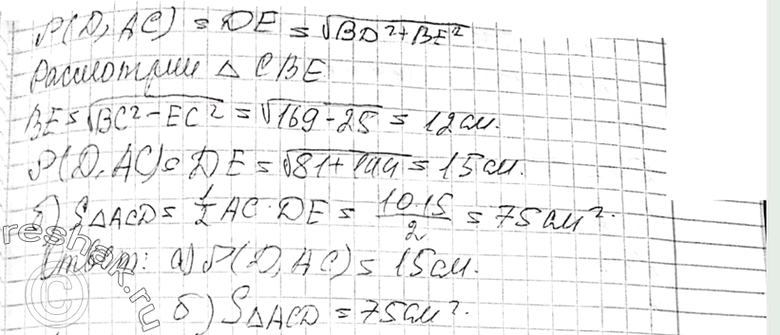 ρ(D, AC) = DE = √(BD² + BE²)
Рассмотрим △ CBE
BE = √(BC² - EC²) = √(169 - 25) = 12 см.
ρ(D, AC) = DE = √(81 + 144) = 15 см.
б) S△ACD = 1/2 AC · DE = 10·15/2 = 75 см².
Ответ: а) ρ(D, AC) = 15 см.
б) S△ACD = 75 см².
© reshak.ru